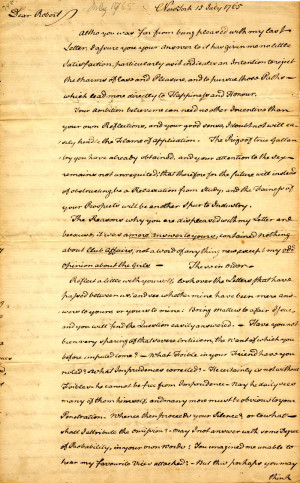 Dear Robert
July 1765
New York 13 July 1765
Altho you was far from being pleased with my last
Letter, I assure you your answer to it has given me no little
Satisfaction, particularly as it indicates an Intention to reject
the Charms of Ease and Pleasure, and to pursue those Paths
which lead more directly to Happiness and Honour.
Your Ambition believe me can need no other Incentives than
your own Reflections, and your good sense, I doubt not will
easily the of application. The Prize of true Gallan-
try you have already obtained, and your attention to the Sex
remains not unrequited; that therefore for the future will instead
of obstructing, be a Relaxation from Study, and the Fairness of
your Prospects will be another Spur to Industry.
The Reasons why you are displeased with my Letter are
because, it was a mere answer to yours, contained nothing
about Club Affairs, not a word of any thing new, except my odd
opinion about the Girls — Then in order —
Reflect a little with yourself, look over the Letters that have
passed between us, and see whether mine have been mere ans-
wers to yours or yours to mine: Bring matters to a fair Issue,
and you will find the Question easily answered — Have you not
been very sparing of that severe Criticism, the want of which you
before imputed to me? — What Foible in your Friend have you
noted? What Imprudence corrected? He certainly is not without
Foibles, he cannot be free from Imprudence. Nay he daily sees
many of them himself, and many more must be obvious to your
Penetration. Whence then proceeds your Silence, or to what
shall I attribute the omission? may I not answer with some Degree
of Probability, in your own Words? You imagined me unable to
bear my favourite Vice attacked: — But this perhaps you may
think